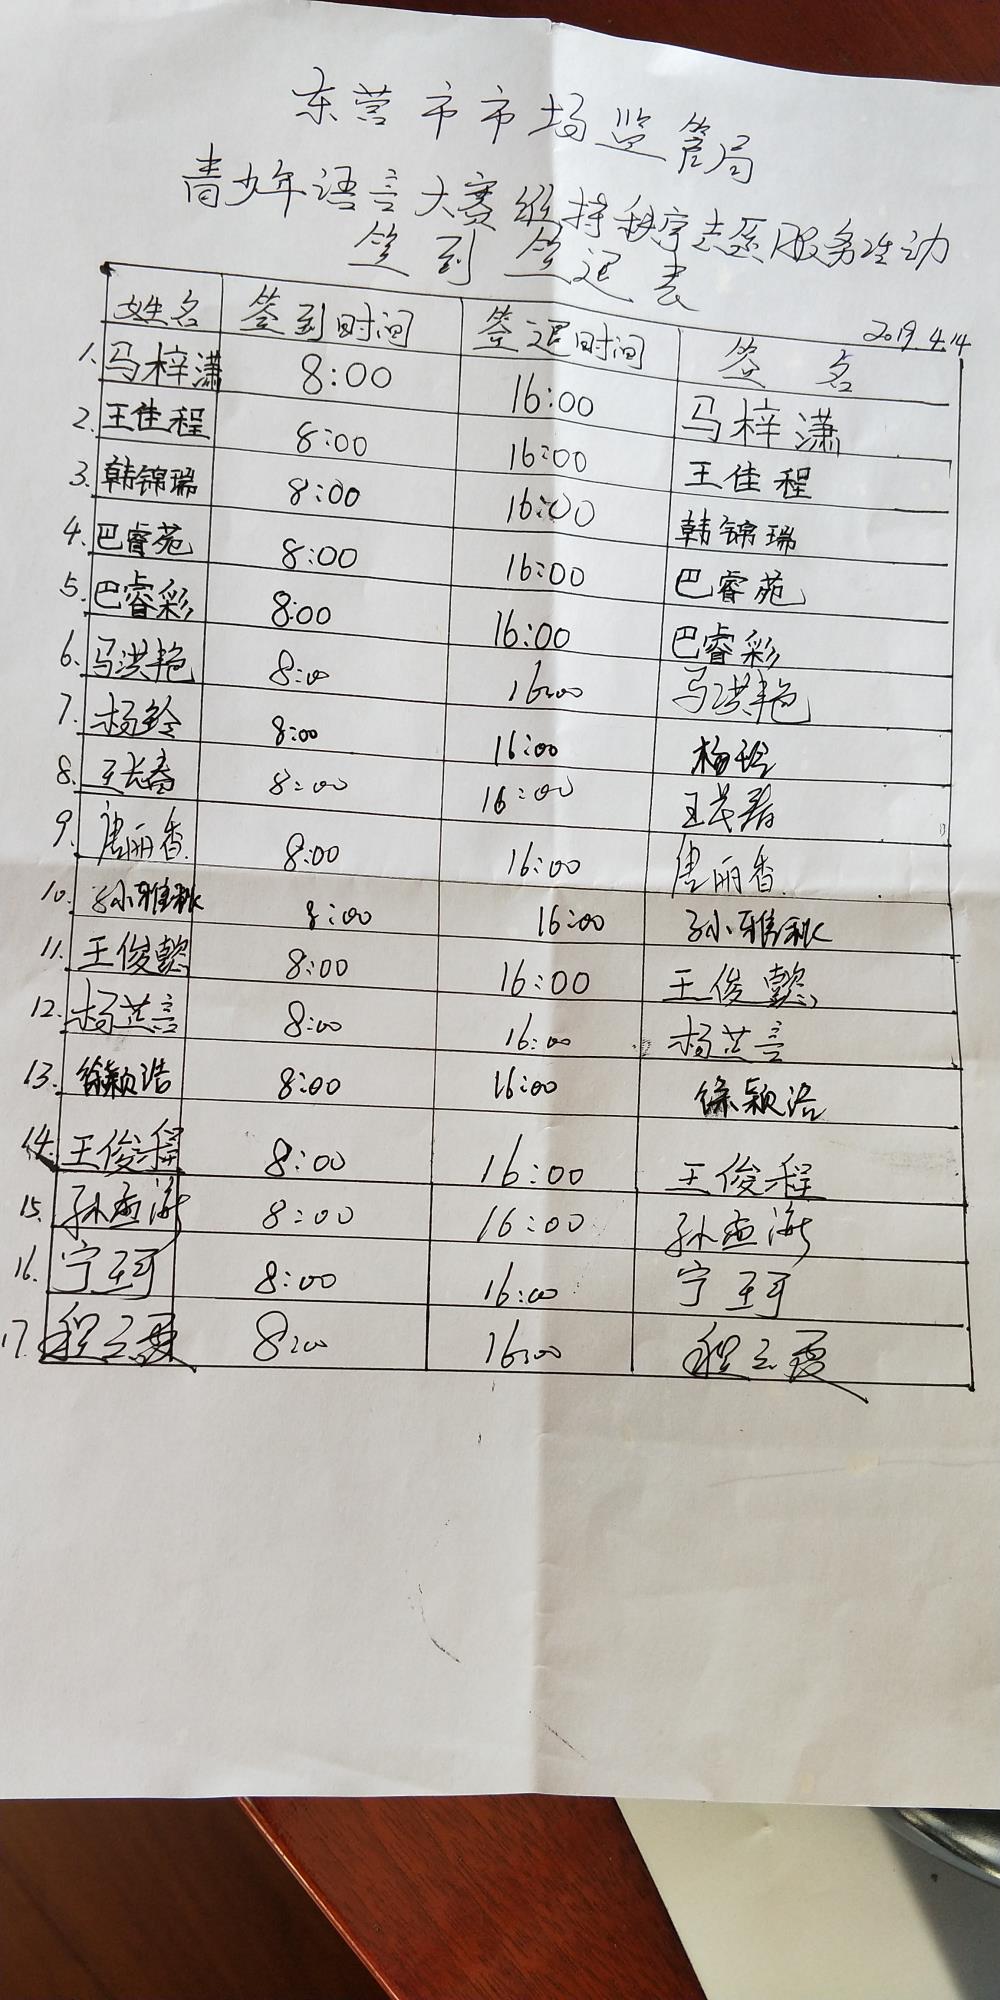 东营市市场监管局
青少年语言大赛维持秩序志愿服务活动
签到签退表
2019.4.14
姓名 签到时间 签退时间 签名
1. 马梓潇 8:00 16:00 马梓潇
2. 王佳程 8:00 16:00 王佳程
3. 韩锦瑞 8:00 16:00 韩锦瑞
4. 巴睿苑 8:00 16:00 巴睿苑
5. 巴睿彩 8:00 16:00 巴睿彩
6. 马洪艳 8:00 16:00 马洪艳
7. 杨玲 8:00 16:00 杨玲
8. 8:00 16:00
9. 唐丽香 8:00 16:00 唐丽香
10. 孙雅秋 8:00 16:00 孙雅秋
11. 王俊懿 8:00 16:00 王俊懿
12. 杨芸言 8:00 16:00 杨芸言
13. 徐颖浩 8:00 16:00 徐颖浩
14. 王俊程 8:00 16:00 王俊程
15. 8:00 16:00
16. 宁珂 8:00 16:00 宁珂
17. 8:00 16:00